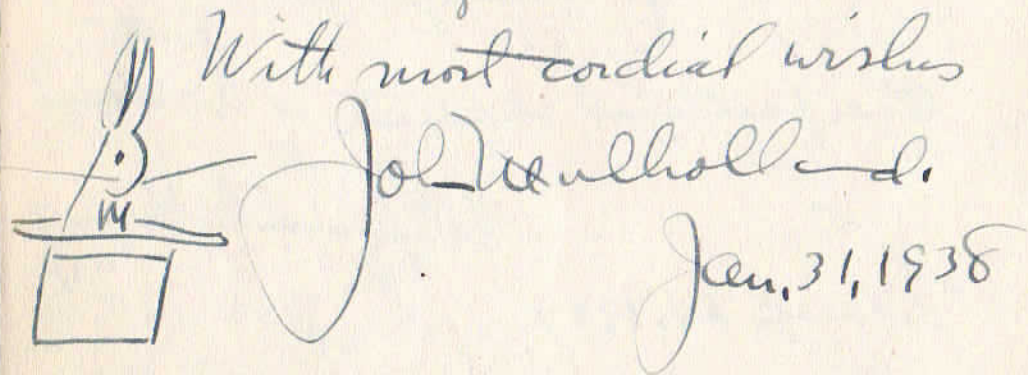 With most cordial wishes
John Mulholland.
Jan. 31, 1938